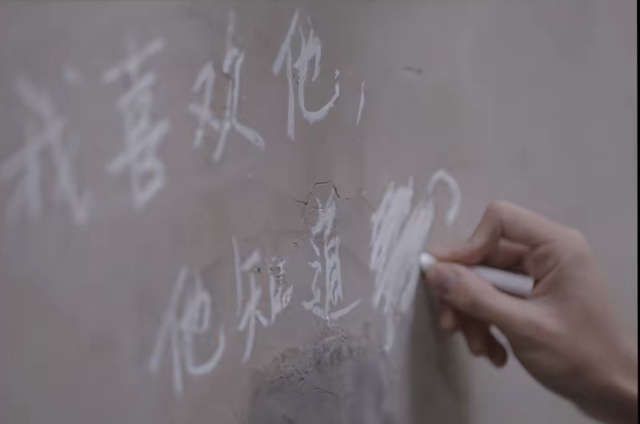 我喜欢他，
他知道